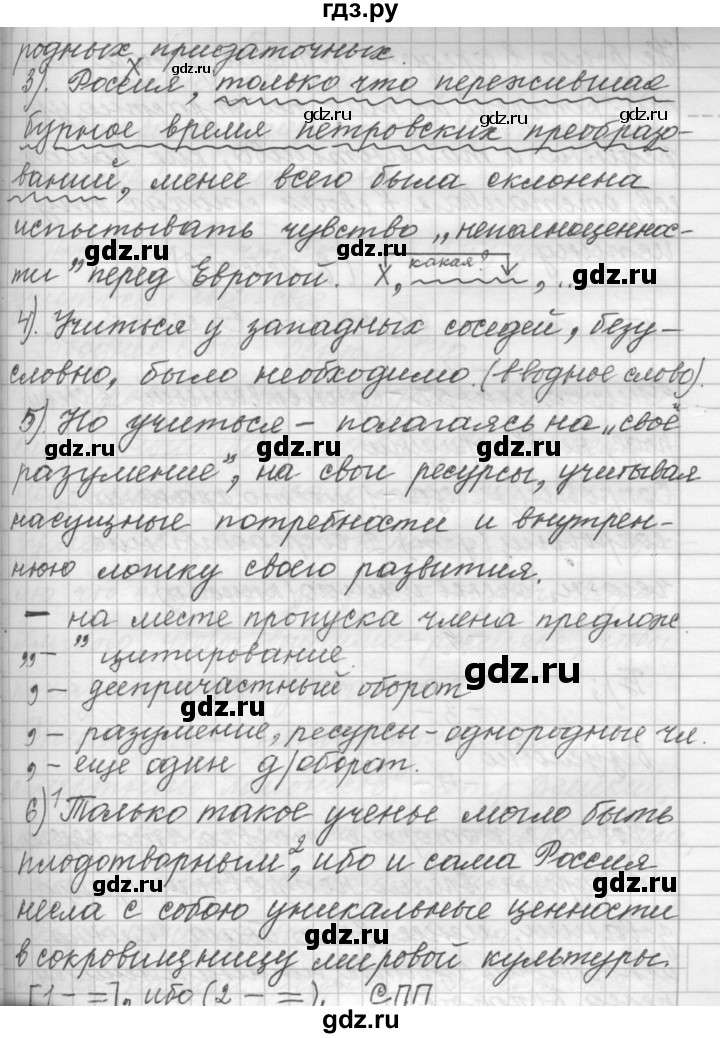 гдз.ру
родных придаточных.
3). Россия, только что пережившая
бурное время петровских преобразо-
ваний, менее всего была склонна
испытывать чувство „неполноценнос-
ти" перед Европой. Х, какая? , ..
4). Учиться у западных соседей, безу-
словно, было необходимо. (вводное слово).
5) Но учиться – полагаясь на „своё
разумение", на свои ресурсы, учитывая
насущные потребности и внутрен-
нюю логику своего развития.
— на месте пропуска члена предлож
„ – " цитирование.
, – деепричастный оборот
, – разумение, ресурсы – однородные чл.
, – еще один д/оборот.
6) ¹Только такое ученье могло быть
плодотворным,² ибо и сама Россия
несла с собою уникальные ценности
в сокровищницу мировой культуры.
[1 – =], ибо (2 – =). СПП
gdz.ru